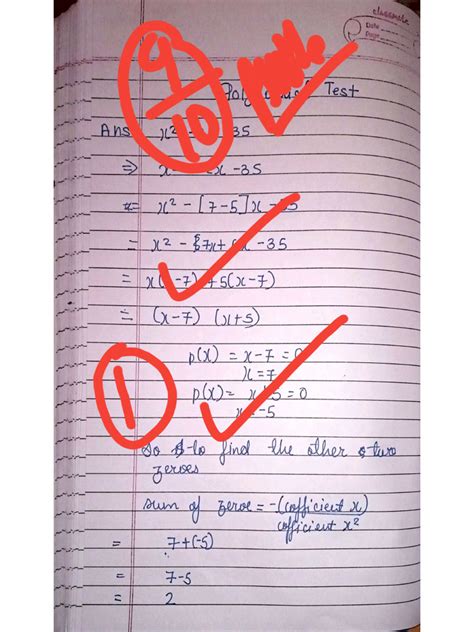 classmate
Date
Page
9/10
Test
Ans x² 35
⇒ x -35
= x² - [7-5]x - 35
= x² - {7x+ x -35
= x( -7) +5(x-7)
= (x-7) (x+5)
1
p(x) = x-7 = 0
x = 7
p(x) = x+5 = 0
x = -5
So to find the other two
zeroes
sum of zeroe = -(cofficient x)/cofficient x²
= 7+(-5)
= 7-5
= 2